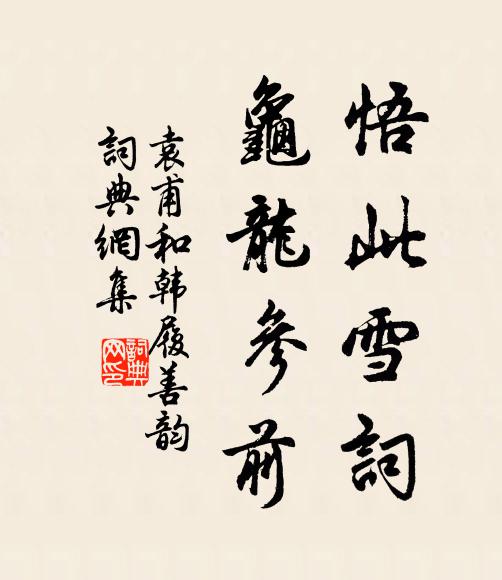 悟此雪詞
龜龍參前
袁甫和韩履善韵
詞典網集
詞典
网印